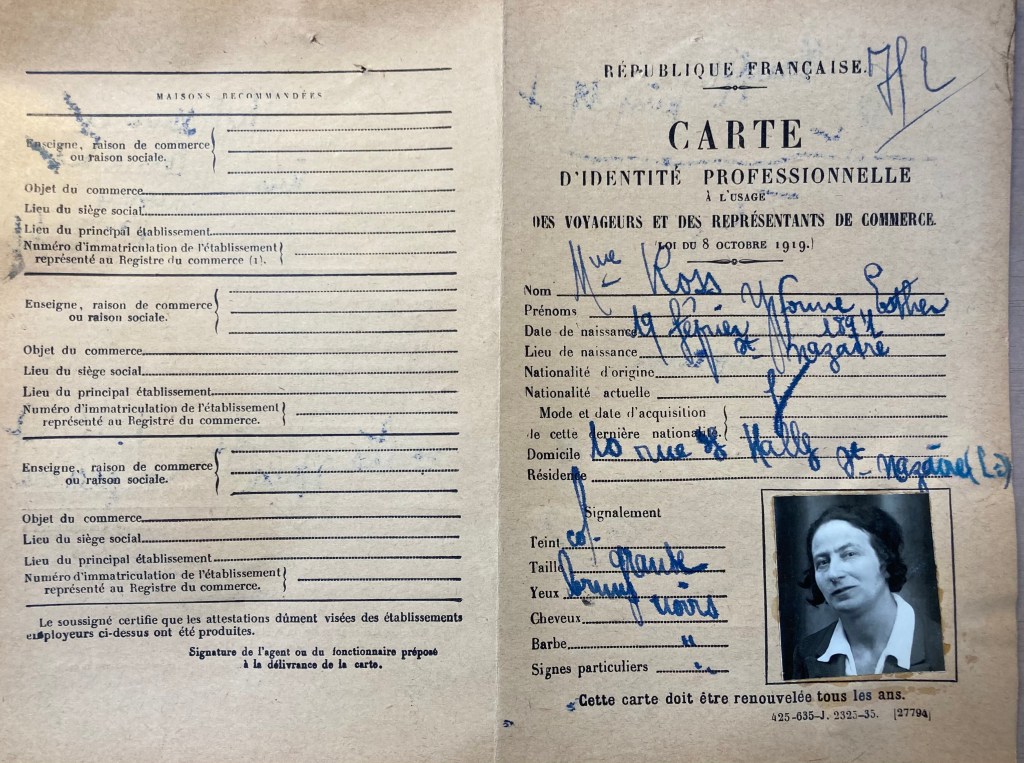 MAISONS RECOMMANDÉES
Enseigne, raison de commerce
ou raison sociale.
Objet du commerce
Lieu du siège social
Lieu du principal établissement
Numéro d'immatriculation de l'établissement
représenté au Registre du commerce (1).
Enseigne, raison de commerce
ou raison sociale.
Objet du commerce
Lieu du siège social
Lieu du principal établissement
Numéro d'immatriculation de l'établissement
représenté au Registre du commerce.
Enseigne, raison de commerce
ou raison sociale.
Objet du commerce
Lieu du siège social
Lieu du principal établissement
Numéro d'immatriculation de l'établissement
représenté au Registre du commerce.
Le soussigné certifie que les attestations dûment visées des établissements
employeurs ci-dessus ont été produites.
Signature de l'agent ou du fonctionnaire préposé
à la délivrance de la carte.
RÉPUBLIQUE FRANÇAISE.
CARTE
D'IDENTITÉ PROFESSIONNELLE
À L'USAGE
DES VOYAGEURS ET DES REPRÉSENTANTS DE COMMERCE.
(LOI DU 8 OCTOBRE 1919.)
Nom Mme Ross
Prénoms Yvonne Esther
Date de naissance 19 février
Lieu de naissance St Nazaire
Nationalité d'origine
Nationalité actuelle
Mode et date d'acquisition
de cette dernière nationalité.
Domicile 10 rue de Halle St Nazaire
Résidence
Signalement
Teint col.
Taille grande
Yeux bruns
Cheveux noirs
Barbe "
Signes particuliers "
Cette carte doit être renouvelée tous les ans.
425-635-J. 2325-35. [27794]